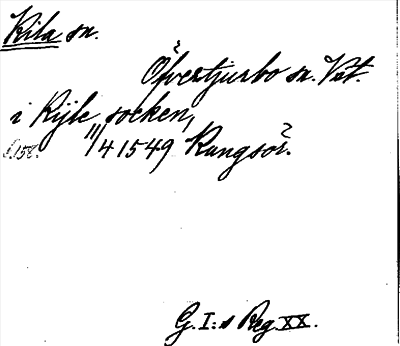 Kila sn.
Öfvertjurbo sn. Vst.
i Kijle socken,
s. 158. 11/4 1549 Kungsör.
G. I:s Reg. XX.